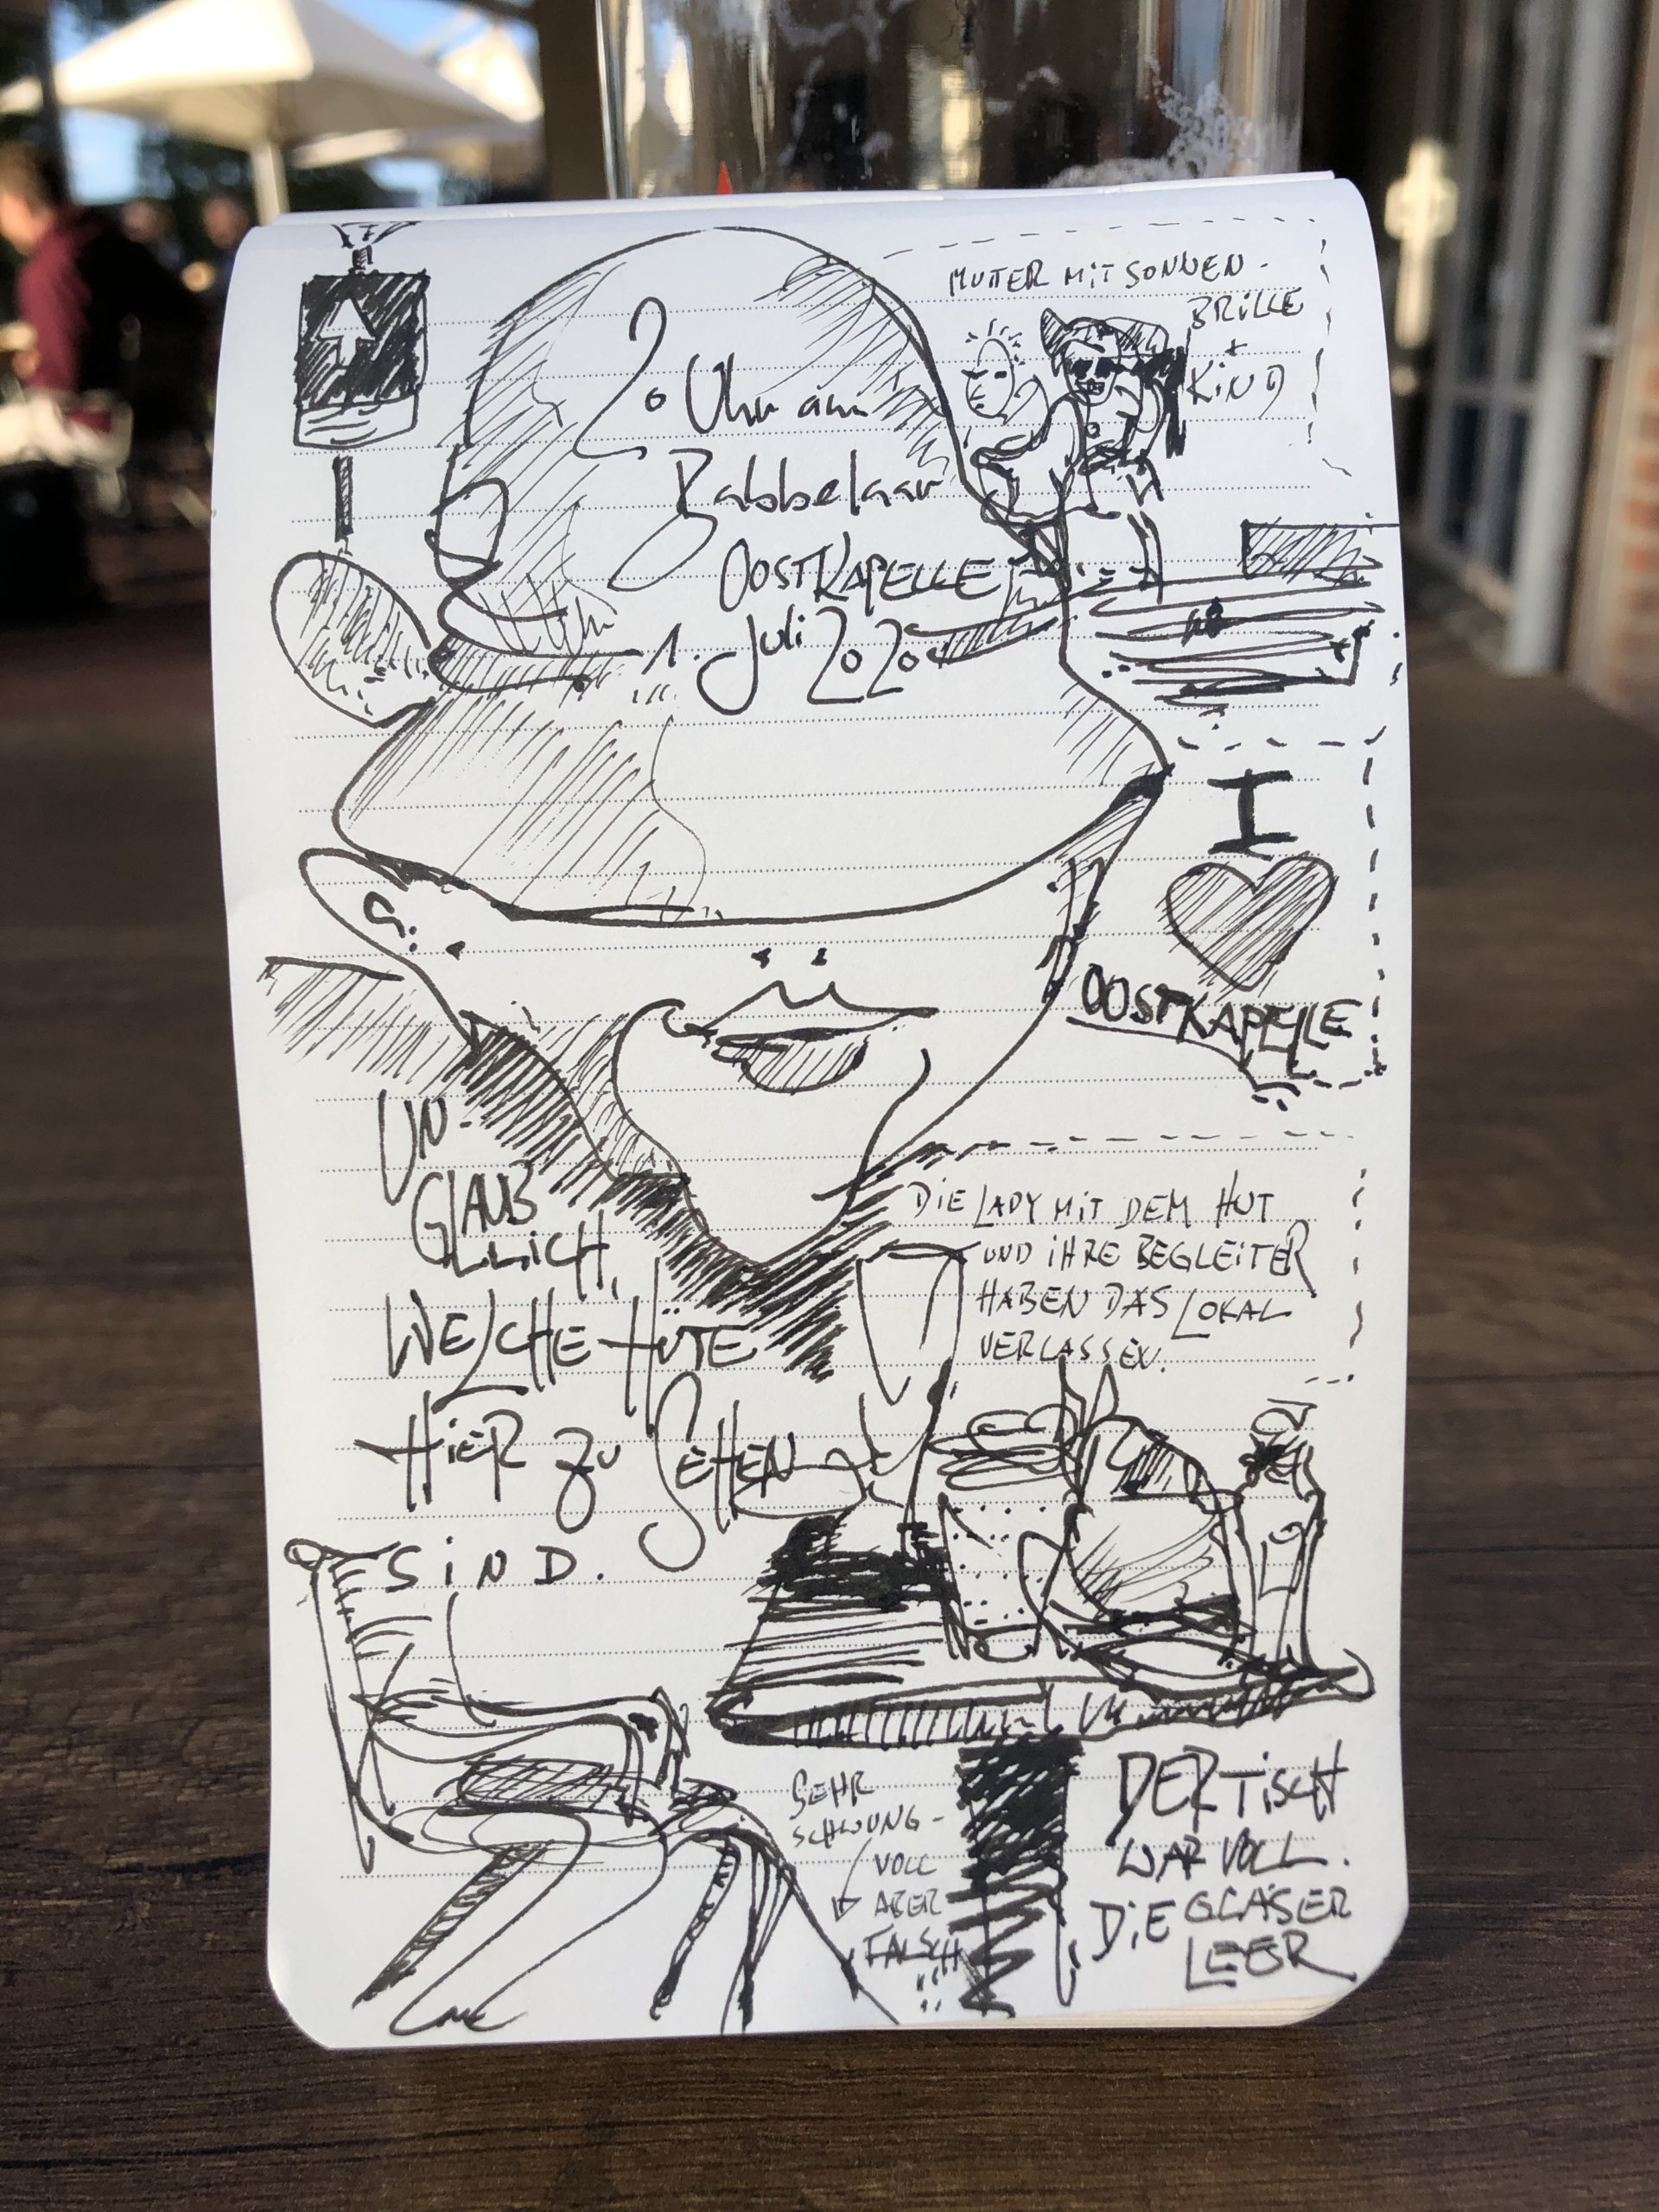 MUTTER MIT SONNEN-
BRILLE
+
KIND
20 Uhr am
Babbelaar
OOSTKAPELLE
1. Juli 2020
I
OOSTKAPELLE
UN-
GLAUB
LLICH,
WELCHE HÜTE
HIER ZU SEHEN
SIND.
DIE LADY MIT DEM HUT
UND IHRE BEGLEITER
HABEN DAS LOKAL
VERLASSEN.
SEHR
SCHWUNG-
VOLL
ABER
FALSCH
DER TISCH
WAR VOLL.
DIE GLÄSER
LEER